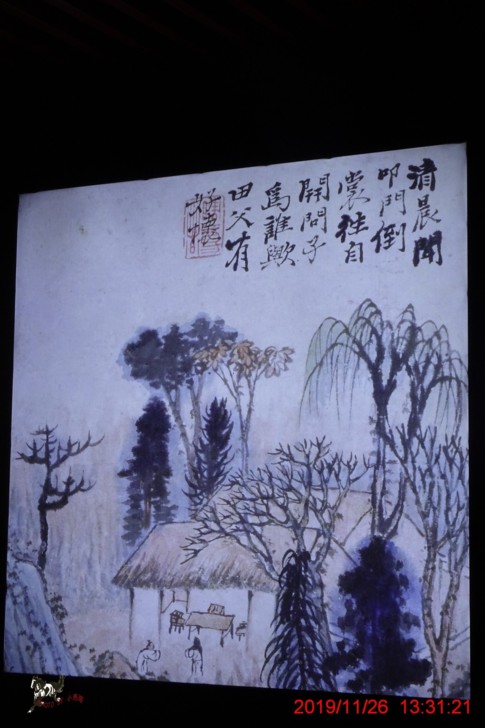 清晨聞
叩門倒
裳往自
開問子
為誰歟
田父有
好懷
2019/11/26 13:31:21